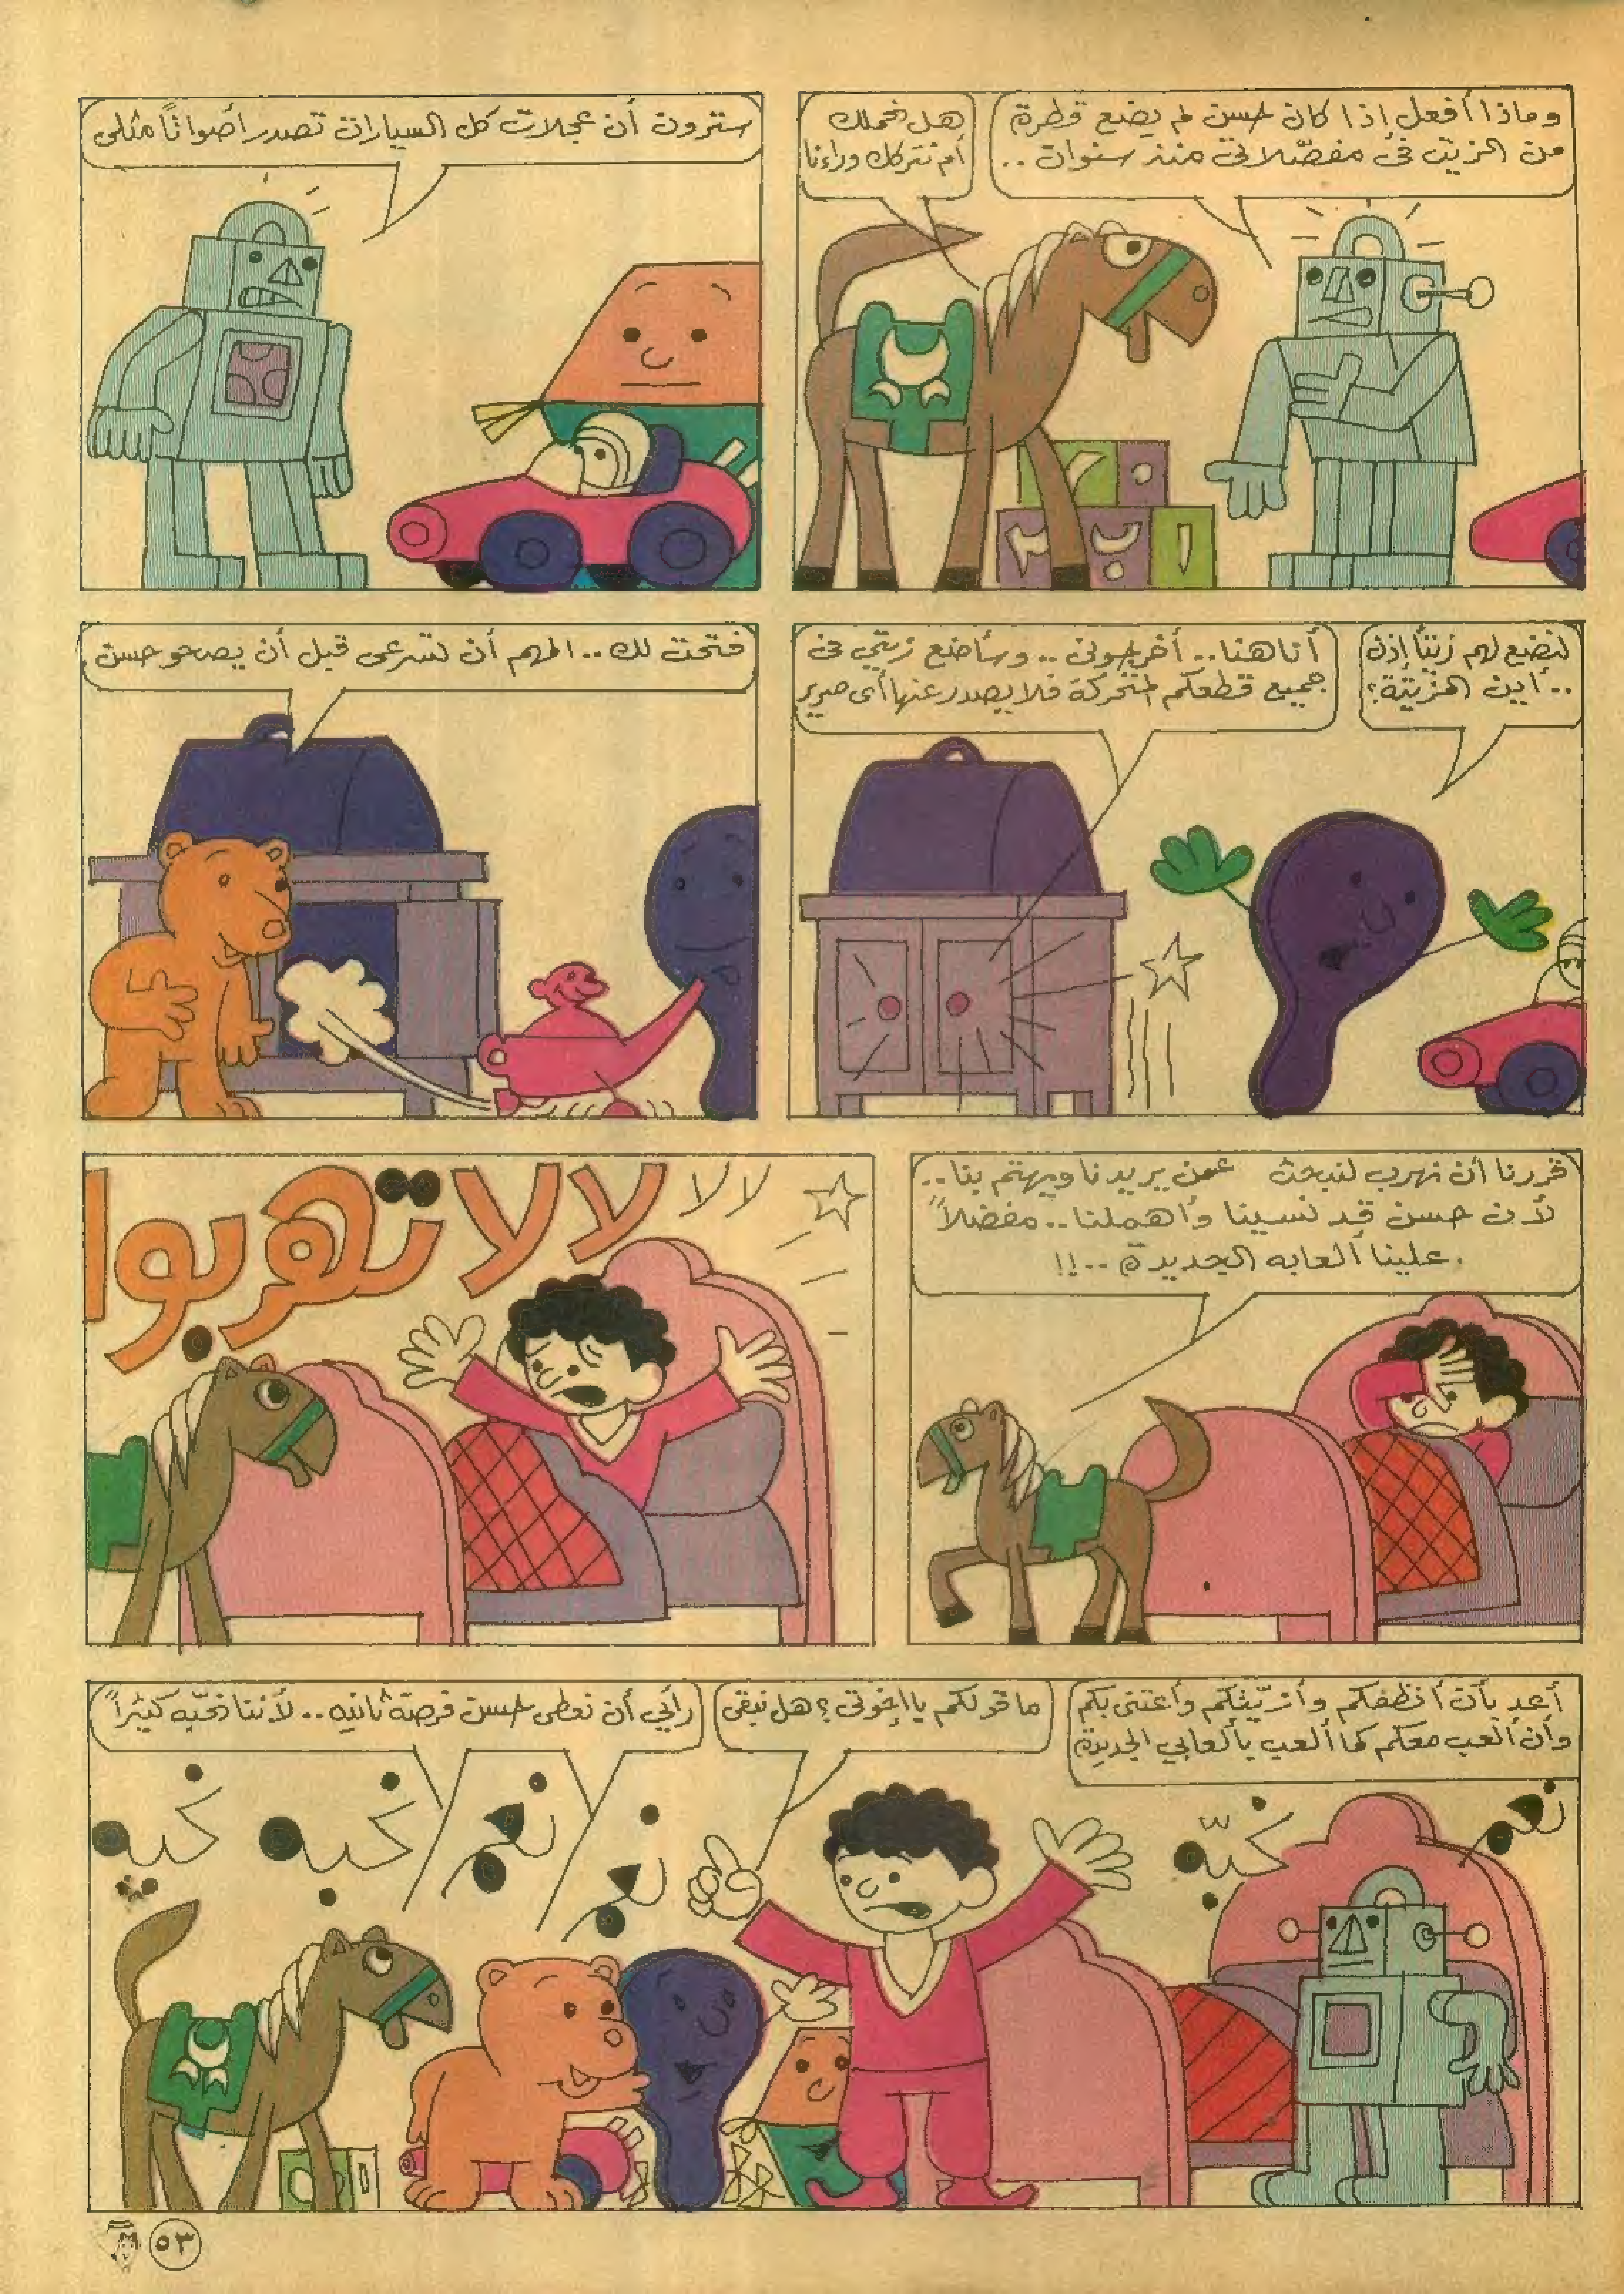 وماذا أفعل إذا كان حسن لم يضع قطرة
من الزيت في مفصّلاتي منذ سنوات ..
هل نحملك
أم نتركك وراءنا
سترون أن عجلات كل السيارات تصدر أصواتاً مثلى
لنضع لهم زيتاً إذن
.. أين المزيتة؟
أنا هنا .. أخرجوني .. وسأضع زيتي في
جميع قطعكم المتحركة فلا يصدر عنها أى صرير
فتحت لك .. المهم أن تسرعى قبل أن يصحو حسن
قررنا أن نهرب لنبحث عمن يريدنا ويهتم بنا ..
لأن حسن قد نسينا وأهملنا .. مفضلاً
علينا ألعابه الجديدة ..!!
لا لا
لا لا تهربوا
أعد بأن أنظفكم وأزيّتكم وأعتنى بكم
وأن ألعب معكم كما ألعب بألعابي الجديدة
ما قولكم يا إخوتى؟ هل نبقى
رأيي أن نعطى حسن فرصة ثانيه .. لأننا نحبّه كثيراً
نعم
نحبّه
نعم
نعم
نحبه
نحبه
ا
ب
٥٣